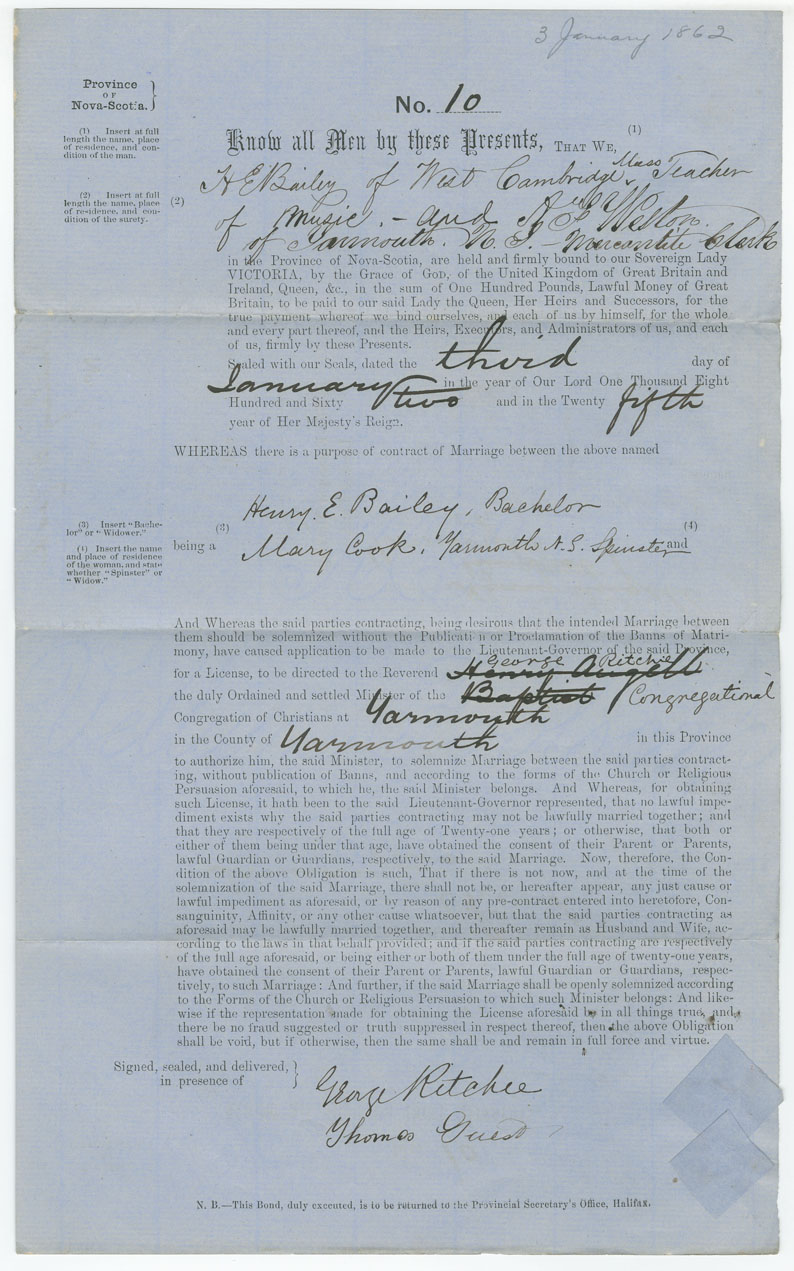 3 January 1862
Province
OF
Nova-Scotia.
No. 10
(1) Insert at full
length the name, place
of residence, and con-
dition of the man.
Know all Men by these Presents, THAT WE, (1)
H E Bailey of West Cambridge Mass Teacher
(2) Insert at full
length the name, place
of residence, and con-
dition of the surety.
(2)
of Music. - and Welton
of Yarmouth. N. S. - Mercantile Clerk
in the Province of Nova-Scotia, are held and firmly bound to our Sovereign Lady
VICTORIA, by the Grace of GOD, of the United Kingdom of Great Britain and
Ireland, Queen, &c., in the sum of One Hundred Pounds, Lawful Money of Great
Britain, to be paid to our said Lady the Queen, Her Heirs and Successors, for the
true payment whereof we bind ourselves, and each of us by himself, for the whole
and every part thereof, and the Heirs, Executors, and Administrators of us, and each
of us, firmly by these Presents.
Sealed with our Seals, dated the third day of
January in the year of Our Lord One Thousand Eight
Hundred and Sixty two and in the Twenty fifth
year of Her Majesty's Reign.
WHEREAS there is a purpose of contract of Marriage between the above named
Henry. E. Bailey, Bachelor
(3) Insert "Bache-
lor" or "Widower."
(4) Insert the name
and place of residence
of the woman, and state
whether "Spinster" or
"Widow."
being a (3) Mary Cook. Yarmouth N. S. Spinster and (4)
And Whereas the said parties contracting, being desirous that the intended Marriage between
them should be solemnized without the Publication or Proclamation of the Banns of Matri-
mony, have caused application to be made to the Lieutenant-Governor of the said Province,
George Ritchie
for a License, to be directed to the Reverend Henry Angell
the duly Ordained and settled Minister of the Baptist Congregational
Congregation of Christians at Yarmouth
in the County of Yarmouth in this Province
to authorize him, the said Minister, to solemnize Marriage between the said parties contract-
ing, without publication of Banns, and according to the forms of the Church or Religious
Persuasion aforesaid, to which he, the said Minister belongs. And Whereas, for obtaining
such License, it hath been to the said Lieutenant-Governor represented, that no lawful impe-
diment exists why the said parties contracting may not be lawfully married together; and
that they are respectively of the full age of Twenty-one years; or otherwise, that both or
either of them being under that age, have obtained the consent of their Parent or Parents,
lawful Guardian or Guardians, respectively, to the said Marriage. Now, therefore, the Con-
dition of the above Obligation is such, That if there is not now, and at the time of the
solemnization of the said Marriage, there shall not be, or hereafter appear, any just cause or
lawful impediment as aforesaid, or by reason of any pre-contract entered into heretofore, Con-
sanguinity, Affinity, or any other cause whatsoever, but that the said parties contracting as
aforesaid may be lawfully married together, and thereafter remain as Husband and Wife, ac-
cording to the laws in that behalf provided; and if the said parties contracting are respectively
of the full age aforesaid, or being either or both of them under the full age of twenty-one years,
have obtained the consent of their Parent or Parents, lawful Guardian or Guardians, respec-
tively, to such Marriage: And further, if the said Marriage shall be openly solemnized according
to the Forms of the Church or Religious Persuasion to which such Minister belongs: And like-
wise if the representation made for obtaining the License aforesaid be in all things true, and
there be no fraud suggested or truth suppressed in respect thereof, then the above Obligation
shall be void, but if otherwise, then the same shall be and remain in full force and virtue.
Signed, sealed, and delivered,
in presence of
George Ritchie
Thomas Guest
N. B.—This Bond, duly executed, is to be returned to the Provincial Secretary's Office, Halifax.